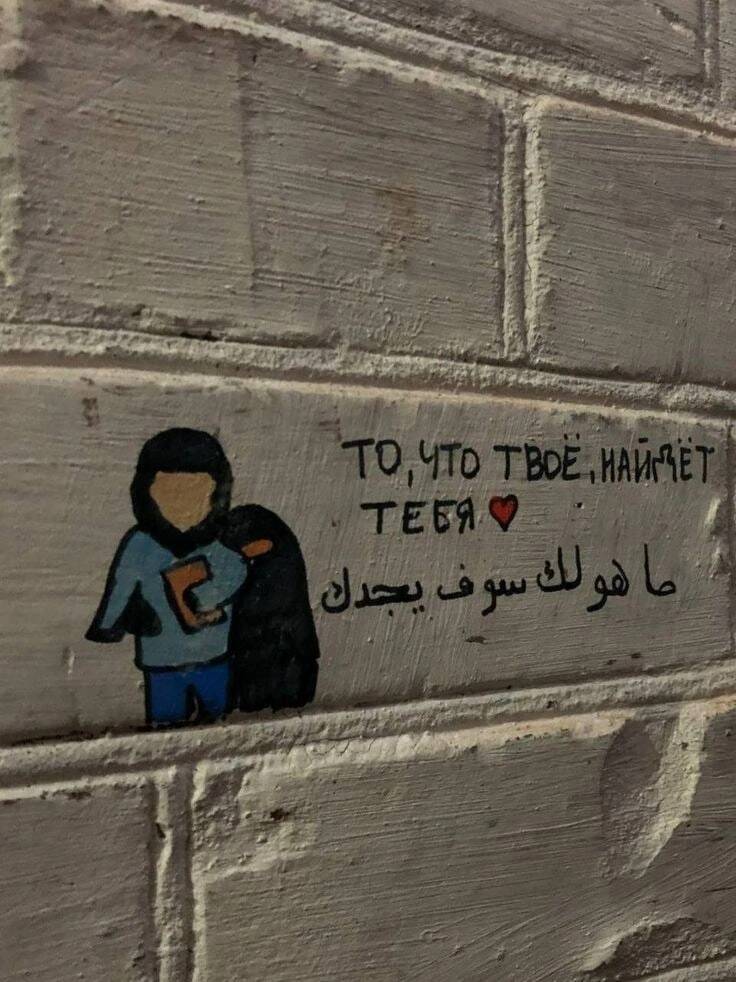 ТО, ЧТО ТВОЁ, НАЙДЁТ
ТЕБЯ ❤
ما هو لك سوف يجدك